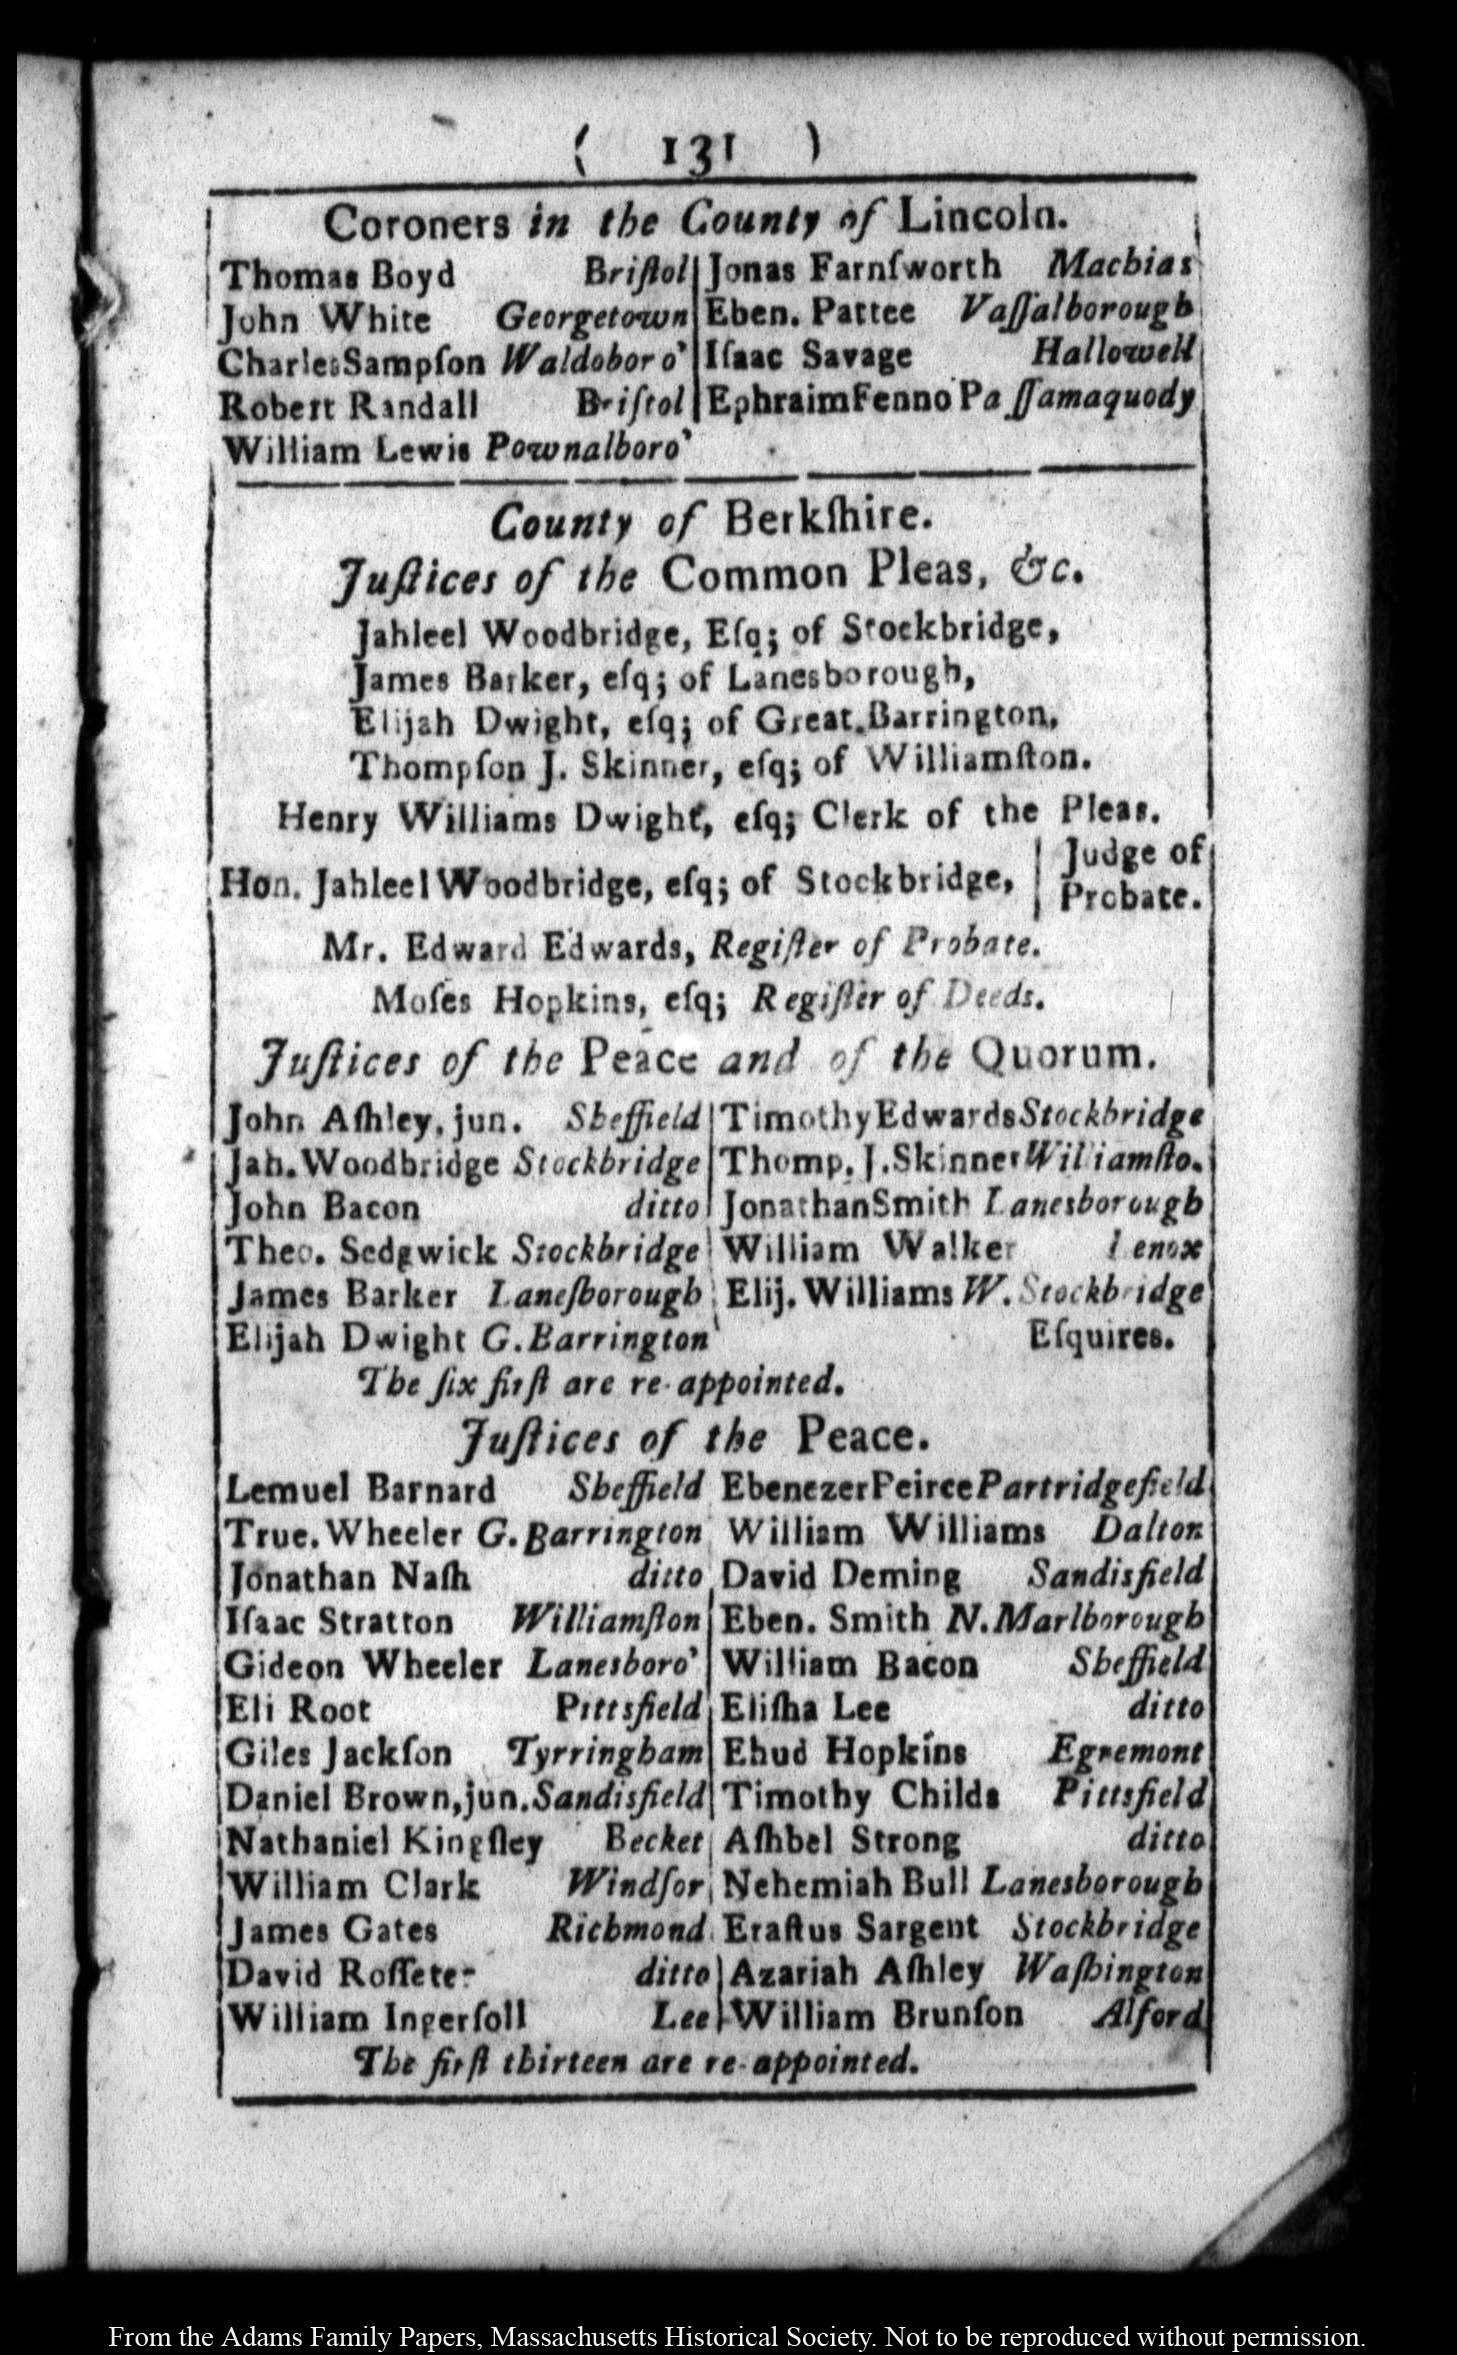 ( 131 )
Coroners in the County of Lincoln.
Thomas Boyd Briſtol
John White Georgetown
Charles Sampſon Waldoboro'
Robert Randall Briſtol
William Lewis Pownalboro'
Jonas Farnſworth Machias
Eben. Pattee Vaſſalborough
Iſaac Savage Hallowell
Ephraim Fenno Paſſamaquody
County of Berkſhire.
Juſtices of the Common Pleas, &c.
Jahleel Woodbridge, Eſq; of Stockbridge,
James Barker, eſq; of Lanesborough,
Elijah Dwight, eſq; of Great Barrington,
Thompſon J. Skinner, eſq; of Williamſton.
Henry Williams Dwight, eſq; Clerk of the Pleas.
Hon. Jahleel Woodbridge, eſq; of Stockbridge, Judge of
Probate.
Mr. Edward Edwards, Regiſter of Probate.
Moſes Hopkins, eſq; Regiſter of Deeds.
Juſtices of the Peace and of the Quorum.
John Aſhley, jun. Sheffield
Jah. Woodbridge Stockbridge
John Bacon ditto
Theo. Sedgwick Stockbridge
James Barker Laneſborough
Elijah Dwight G. Barrington
Timothy Edwards Stockbridge
Thomp. J. Skinner Williamſto.
Jonathan Smith Lanesborough
William Walker Lenox
Elij. Williams W. Stockbridge
Eſquires.
The ſix firſt are re-appointed.
Juſtices of the Peace.
Lemuel Barnard Sheffield
True. Wheeler G. Barrington
Jonathan Naſh ditto
Iſaac Stratton Williamſton
Gideon Wheeler Lanesboro'
Eli Root Pittsfield
Giles Jackſon Tyrringham
Daniel Brown, jun. Sandisfield
Nathaniel Kingſley Becket
William Clark Windſor
James Gates Richmond
David Roſſeter ditto
William Ingerſoll Lee
Ebenezer Peirce Partridgefield
William Williams Dalton
David Deming Sandisfield
Eben. Smith N. Marlborough
William Bacon Sheffield
Eliſha Lee ditto
Ehud Hopkins Egremont
Timothy Childs Pittsfield
Aſhbel Strong ditto
Nehemiah Bull Lanesborough
Eraſtus Sargent Stockbridge
Azariah Aſhley Waſhington
William Brunſon Alford
The firſt thirteen are re-appointed.
From the Adams Family Papers, Massachusetts Historical Society. Not to be reproduced without permission.